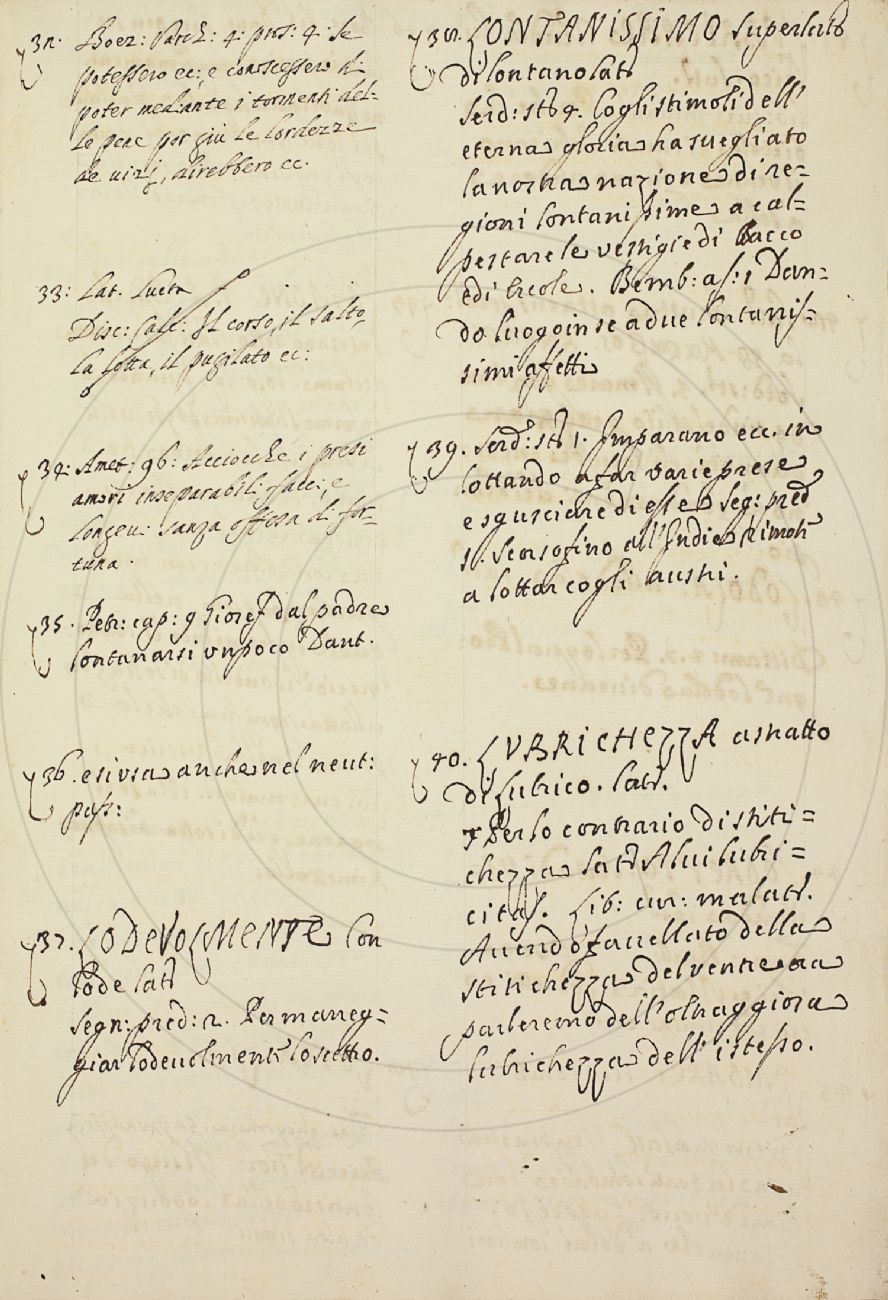 32. Boez: Varch: 4: pros: 4. Se
potessero ec:, e conoscessero di
poter mediante i tormenti del=
le pene por giù le lordezze
de vizi, direbbero ec.
33: Lat. Lucta
Disc: Calc: Il corso, il salto,
la lotta, il pugilato ec:
34: Amet: 96: Acciocchè i presi
amori inseparabili facc:, e
longevi: sanza offesa di for=
tuna.
35. Petr: cap: 9 Giosef dal padre
lontanarsi un poco Dant.
36. e si usa anche nel neut:
pass:
37. LODEVOLMENTE Con
lode lat.
Segn: pred: 2. Per maneg=
giar lodevolmente lo scettro.
38. LONTANISSIMO Superlat.
di lontano lat.
Serd: st. 4. Cogli stimoli dell'
eterna gloria ha svegliato
la nostra nazione di re=
gioni lontanissime a cal=
pestare le vestigie di Bacco
e di Ercole. Bemb: as: 1 Dan=
do luogo in se a due lontanis=
simi affetti
39. Serd: st. 1. Imparano ecc. in
lottando a far varie prese
e sgusciare di esse Seg: pred
1. Scorso fino all'Indie rimoti
a lottar cogli austri.
40. LUBRICHEZZA astratto
di Lubrico. lat.
Per lo contrario di stiti=
chezza lat. Alvi lubri=
citas. Lib: cur: malat.
Avendo favellato della
stitichezza del ventre ora
parleremo dell'oltraggiosa
lubrichezza dell'istesso.